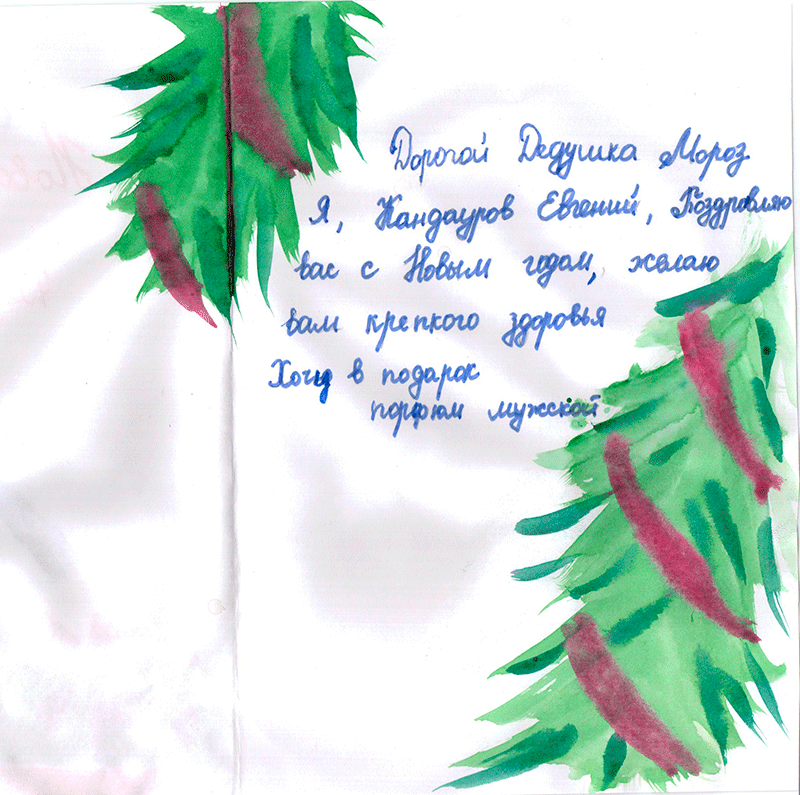 Дорогой Дедушка Мороз
Я, Жандауров Евгений, Поздровляю
вас с Новым годом, желаю
вам крепкого здоровья
Хочу в подарок
порфюм мужской